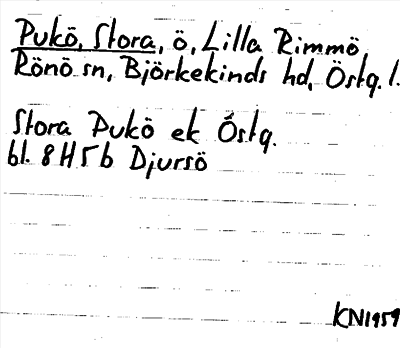 Pukö, Stora, ö, Lilla Rimmö
Rönö sn, Björkekinds hd, Östg. l.
Stora Pukö ek Östg.
bl. 8 H 5 b Djursö
KN1959